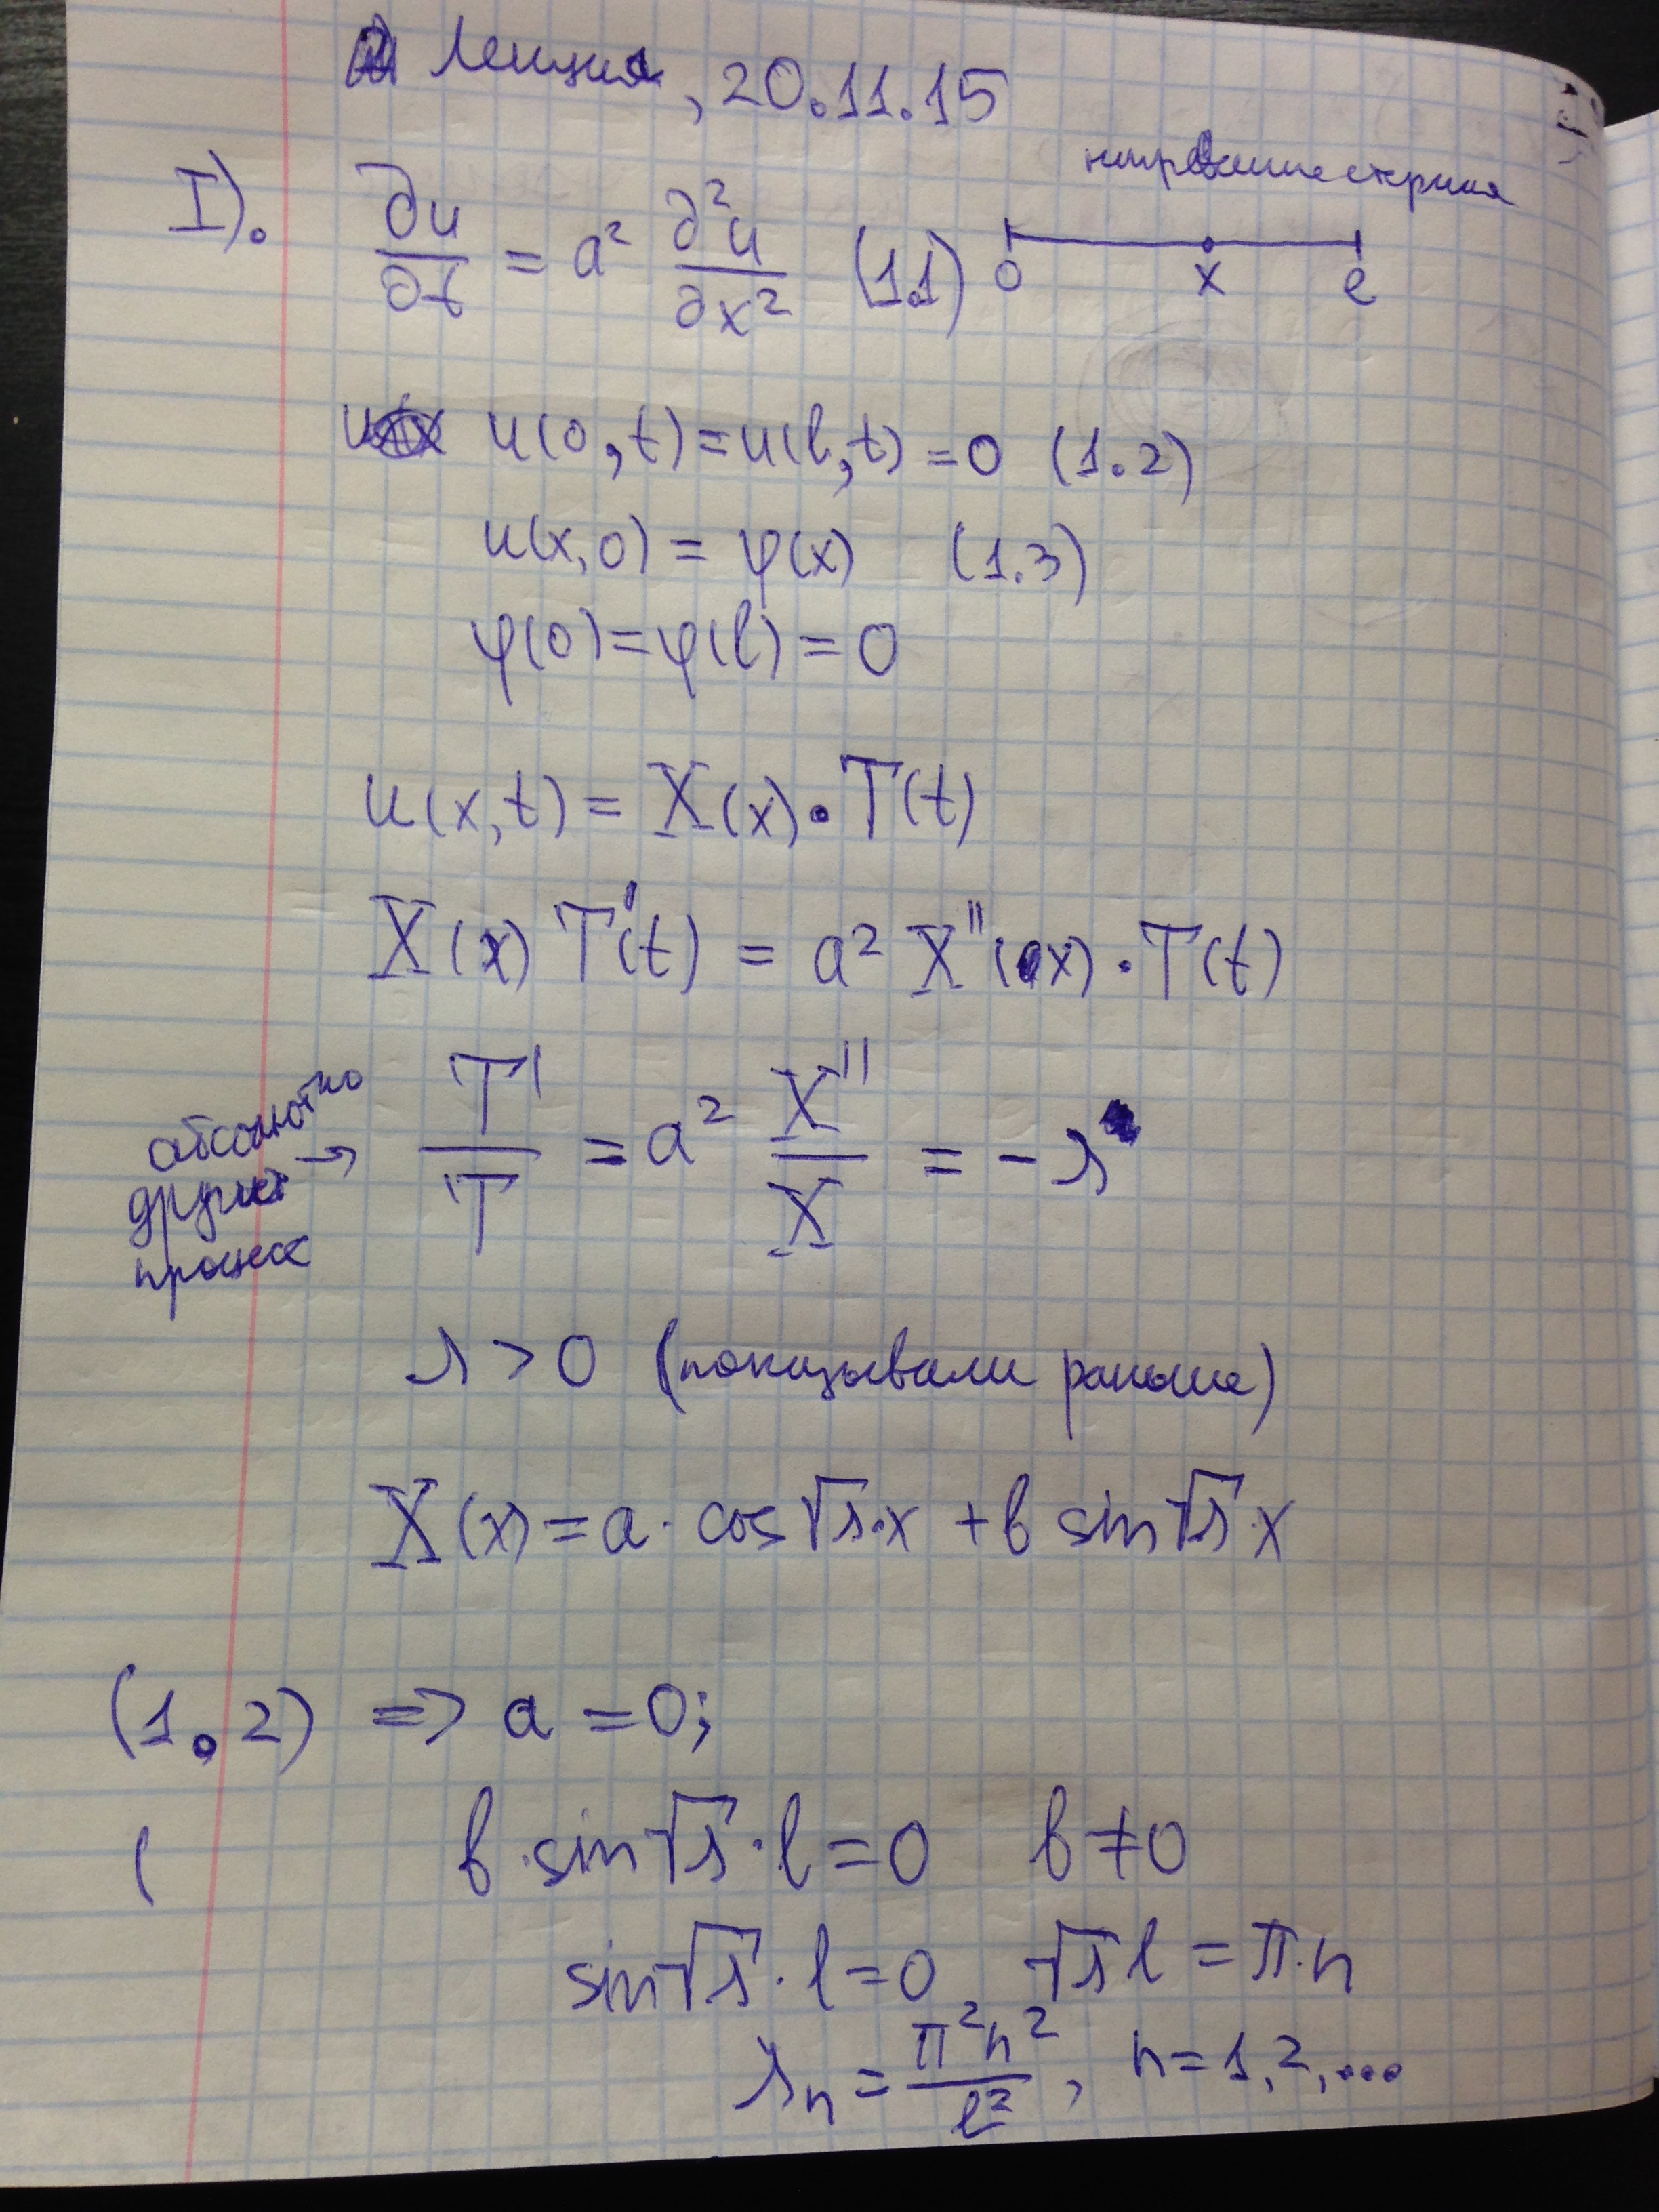 Лекция, 20.11.15
нагревание стержня
I). ∂u/∂t = a² ∂²u/∂x² (1.1)
0 x l
u(0,t) = u(l,t) = 0 (1.2)
u(x,0) = φ(x) (1.3)
φ(0) = φ(l) = 0
u(x,t) = X(x)·T(t)
X(x) T'(t) = a² X''(x)·T(t)
абсолютно
другой
процесс
→ T'/T = a² X''/X = -λ
λ > 0 (показывали раньше)
X(x) = a·cos√λ·x + b sin√λ·x
(1.2) => a = 0;
( b·sin√λ·l = 0 b ≠ 0
sin√λ·l = 0 √λ l = π·n
λn = π²n²/l², n = 1,2,...